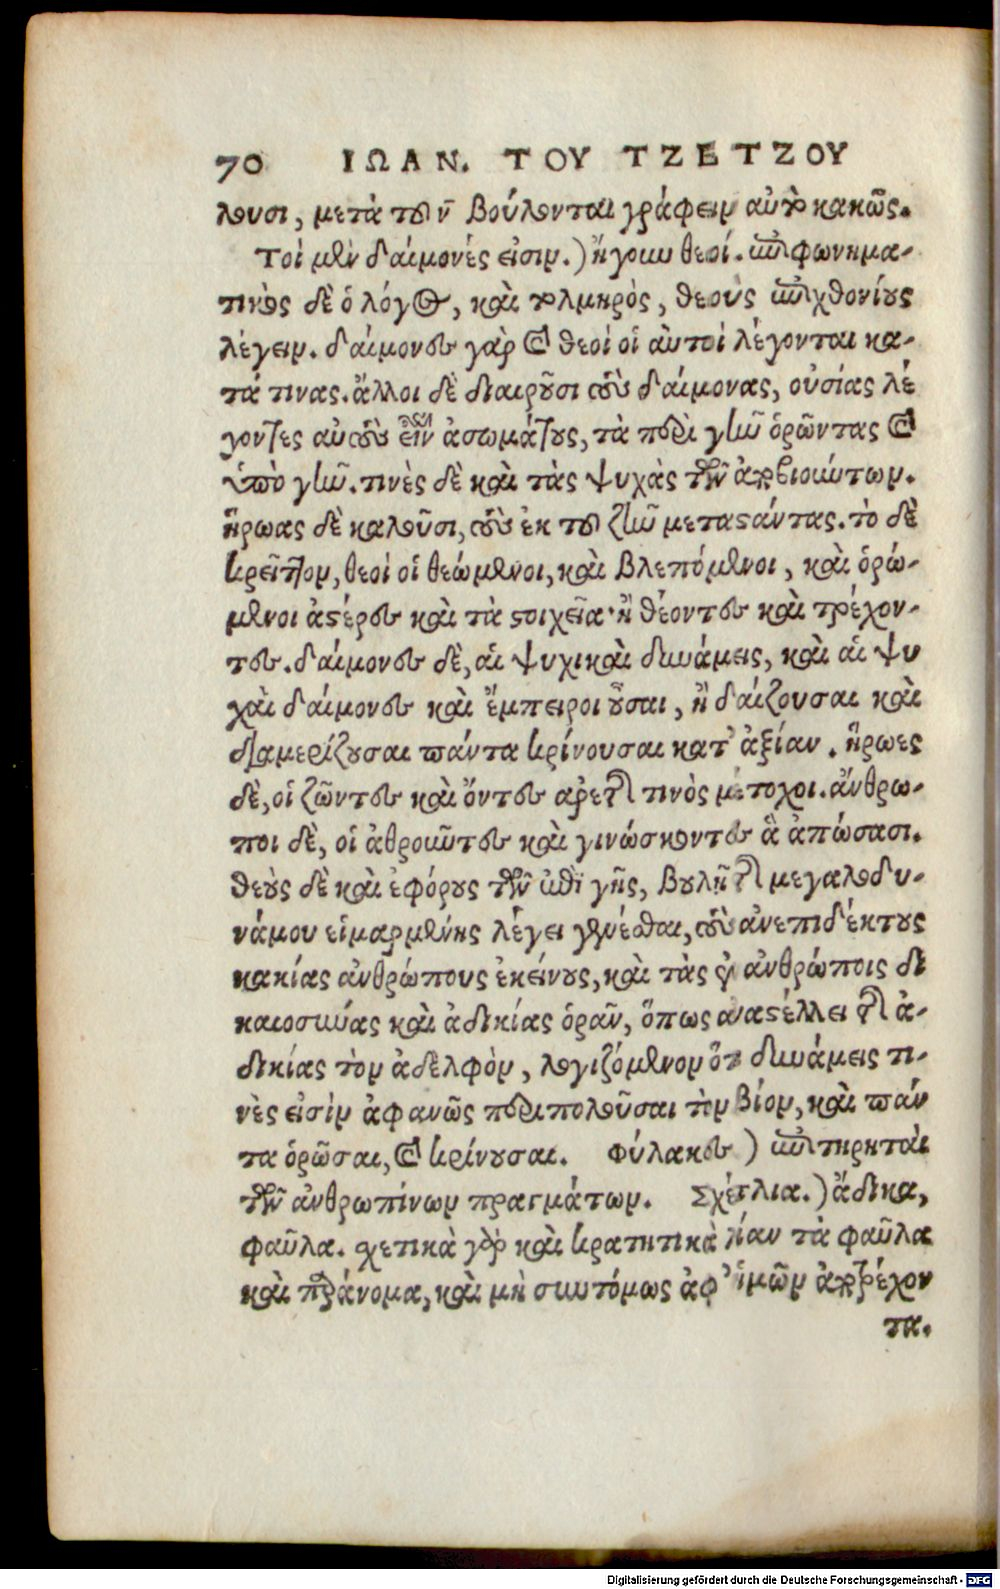 70 ΙΩΑΝ. ΤΟΥ ΤΖΕΤΖΟΥ
λουσι, μετὰ τοῦ ν̄ βούλονται γράφειν αὐτὸ κακῶς.
Τοὶ μὲν δαίμονές εἰσιν.) ἤγουν θεοί. ἐπιφωνημα-
τικὸς δὲ ὁ λόγος, καὶ τολμηρὸς, θεοὺς ἐπιχθονίους
λέγειν. δαίμονες γὰρ καὶ θεοὶ οἱ αὐτοὶ λέγονται κα-
τά τινας. ἄλλοι δὲ διαιροῦσι τοὺς δαίμονας, οὐσίας λέ
γοντες αὐτοὺς εἶναι ἀσωμάτους, τὰ περὶ γῆν ὁρῶντας καὶ
ὑπὸ γῆν. τινὲς δὲ καὶ τὰς ψυχὰς τῶν ἀποβιούντων.
ἥρωας δὲ καλοῦσι, τοὺς ἐκ τοῦ ζῆν μεταστάντας. τὸ δὲ
κρεῖττον, θεοὶ οἱ θεώμενοι, καὶ βλεπόμενοι, καὶ ὁρώ-
μενοι ἀστέρες καὶ τὰ στοιχεῖα· ἢ θέοντες καὶ τρέχον-
τες. δαίμονες δὲ, αἱ ψυχικαὶ δυνάμεις, καὶ αἱ ψυ
χαὶ δαίμονες καὶ ἔμπειροι οὖσαι, ἢ δαίζουσαι καὶ
διαμερίζουσαι πάντα κρίνουσαι κατ' ἀξίαν. ἥρωες
δὲ, οἱ ζῶντες καὶ ὄντες ἀρετῆς τινὸς μέτοχοι. ἄνθρω-
ποι δὲ, οἱ ἀθροῦντες καὶ γινώσκοντες ἃ ἀπώσασι.
θεοὺς δὲ καὶ ἐφόρους τῶν ἐπὶ γῆς, βουλῇ τῆς μεγαλοδυ-
νάμου εἱμαρμένης λέγει γενέσθαι, τοὺς ἀνεπιδέκτους
κακίας ἀνθρώπους ἐκείνους, καὶ τὰς ἐν ἀνθρώποις δι
καιοσύνας καὶ ἀδικίας ὁρᾶν, ὅπως ἀναστέλλει τῆς ἀ-
δικίας τὸν ἀδελφὸν, λογιζόμενον ὅτι δυνάμεις τι-
νὲς εἰσὶν ἀφανῶς περιπολοῦσαι τὸν βίον, καὶ πάν
τα ὁρῶσαι, καὶ κρίνουσαι. Φύλακες) ἐπιτηρηταὶ
τῶν ἀνθρωπίνων πραγμάτων. Σχέτλια.) ἄδικα,
φαῦλα. σχετικὰ γὰρ καὶ κρατητικὰ λίαν τὰ φαῦλα
καὶ παράνομα, καὶ μὴ συντόμως ἀφ' ἡμῶν ἀποτρέχον
τα.
Digitalisierung gefördert durch die Deutsche Forschungsgemeinschaft - DFG